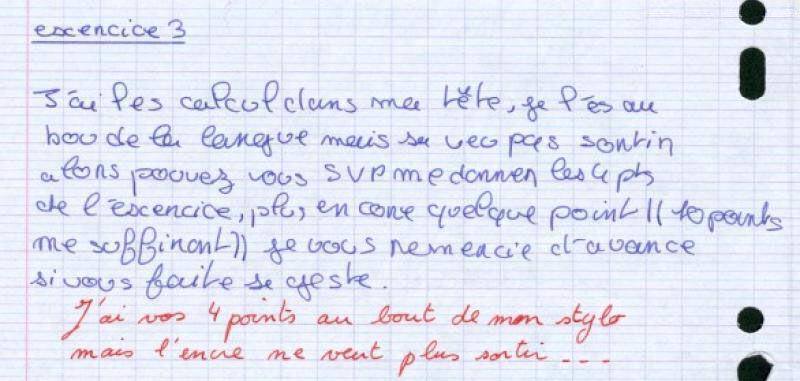 excencice 3
J'ai les calcul dans ma tête, je l'es au
bou de la langue mais sa veo pas sortir
alors pouvez vous SVP me donner les 4 pts
de l'excencice, plus encore quelque point (( 10 points
me suffiront)) je vous remercie d'avance
si vous faite se geste.
J'ai vos 4 points au bout de mon stylo
mais l'encre ne veut plus sortir ...